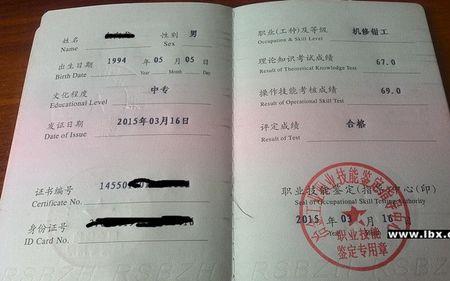 姓名
Name
性别 男
Sex
出生日期 1994 年 05 月 05 日
Birth Date Year Month Day
文化程度 中专
Educational Level
发证日期 2015年03月16日
Date of Issue
证书编号 14550
Certificate No.
身份证号
ID Card No.
职业(工种)及等级 机修钳工
Occupation & Skill Level
理论知识考试成绩 67.0
Result of Theoretical Knowledge Test
操作技能考核成绩 69.0
Result of Operational Skill Test
评定成绩 合格
Result of Test
职业技能鉴定(指导)中心(印)
Seal of Occupational Skill Testing Authority
2015 年 03 月 16 日
职业技能
鉴定专用章
www.lbx.c